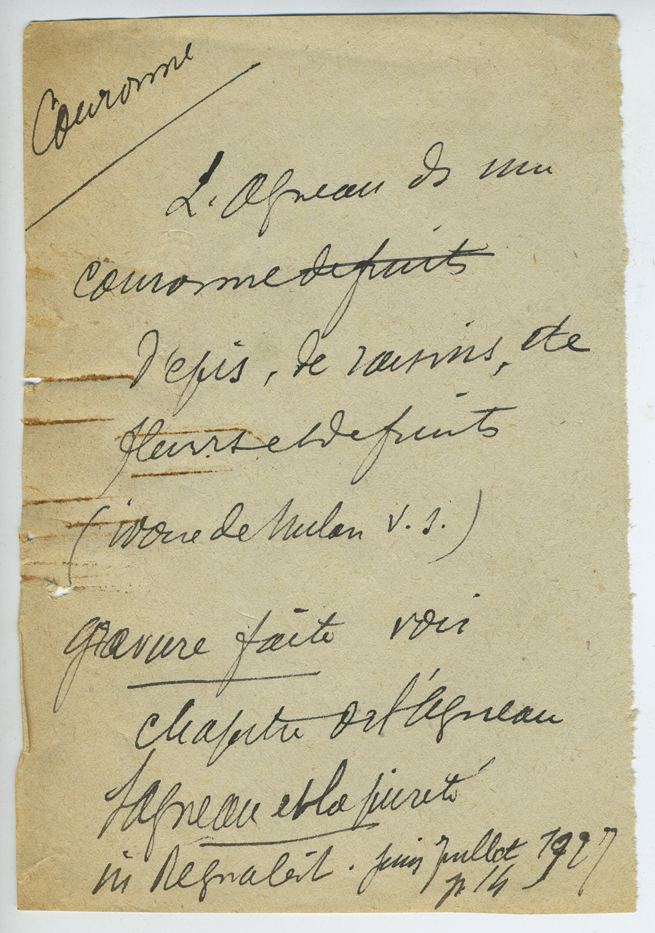 Couronne
L'Agneau ds une
couronne de fruits
d'epis, de raisins, de
fleurs et de fruits
(ivoire de Milan V. s.)
gravure faite voir
chapitre de l'Agneau
L'agneau et la pureté
in Regnabit. juin juillet 1927
p 14